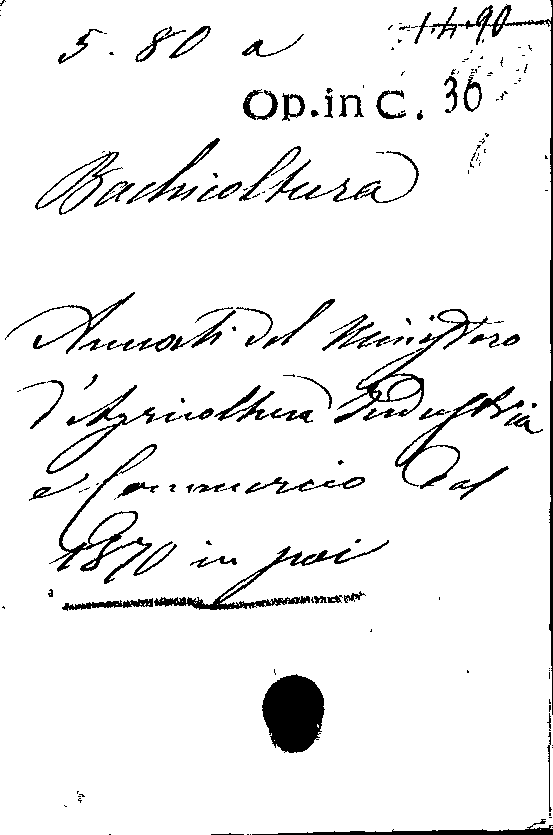 5. 80 a 14.90
Op.in C. 36
Bachicoltura
Annali del Ministero
d'Agricoltura Industria
e Commercio dal
1870 in poi